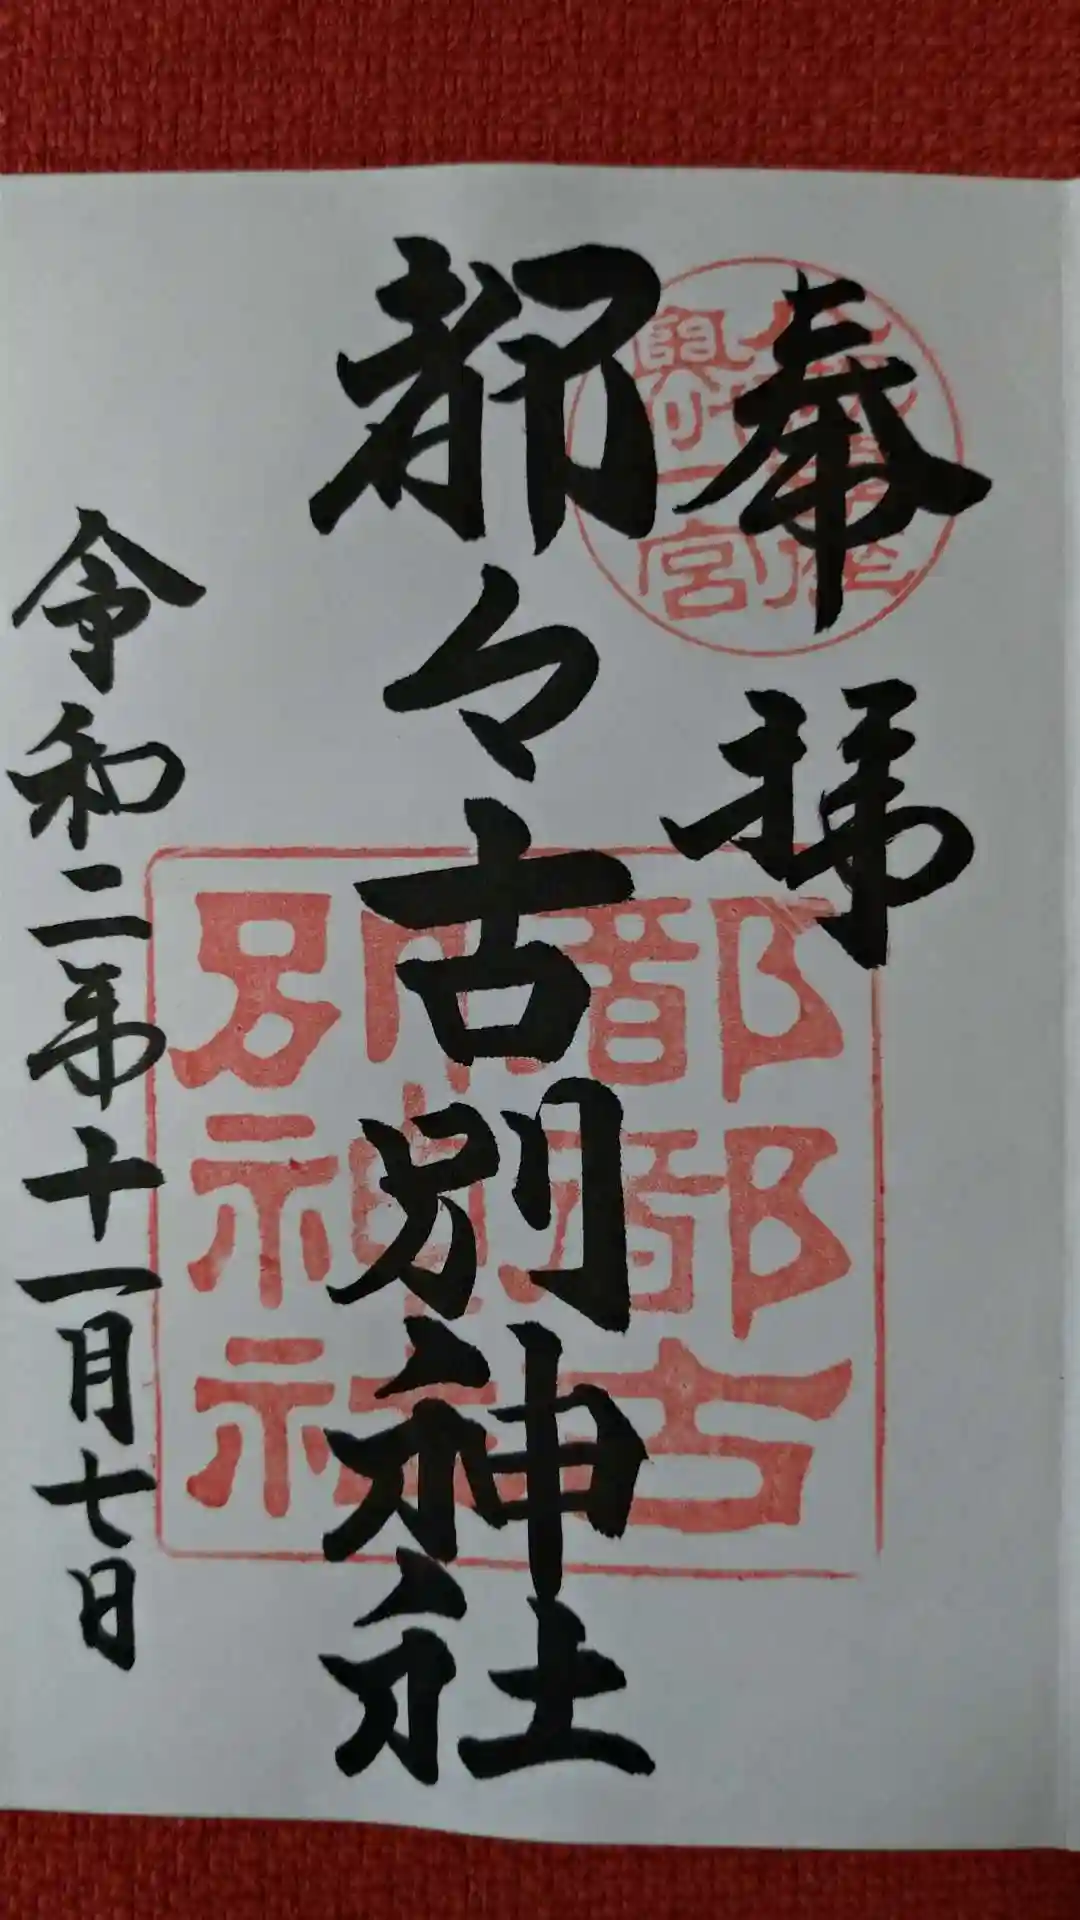 奉拝
都々古別神社
令和二年十一月七日
一宮
都都古
別神社